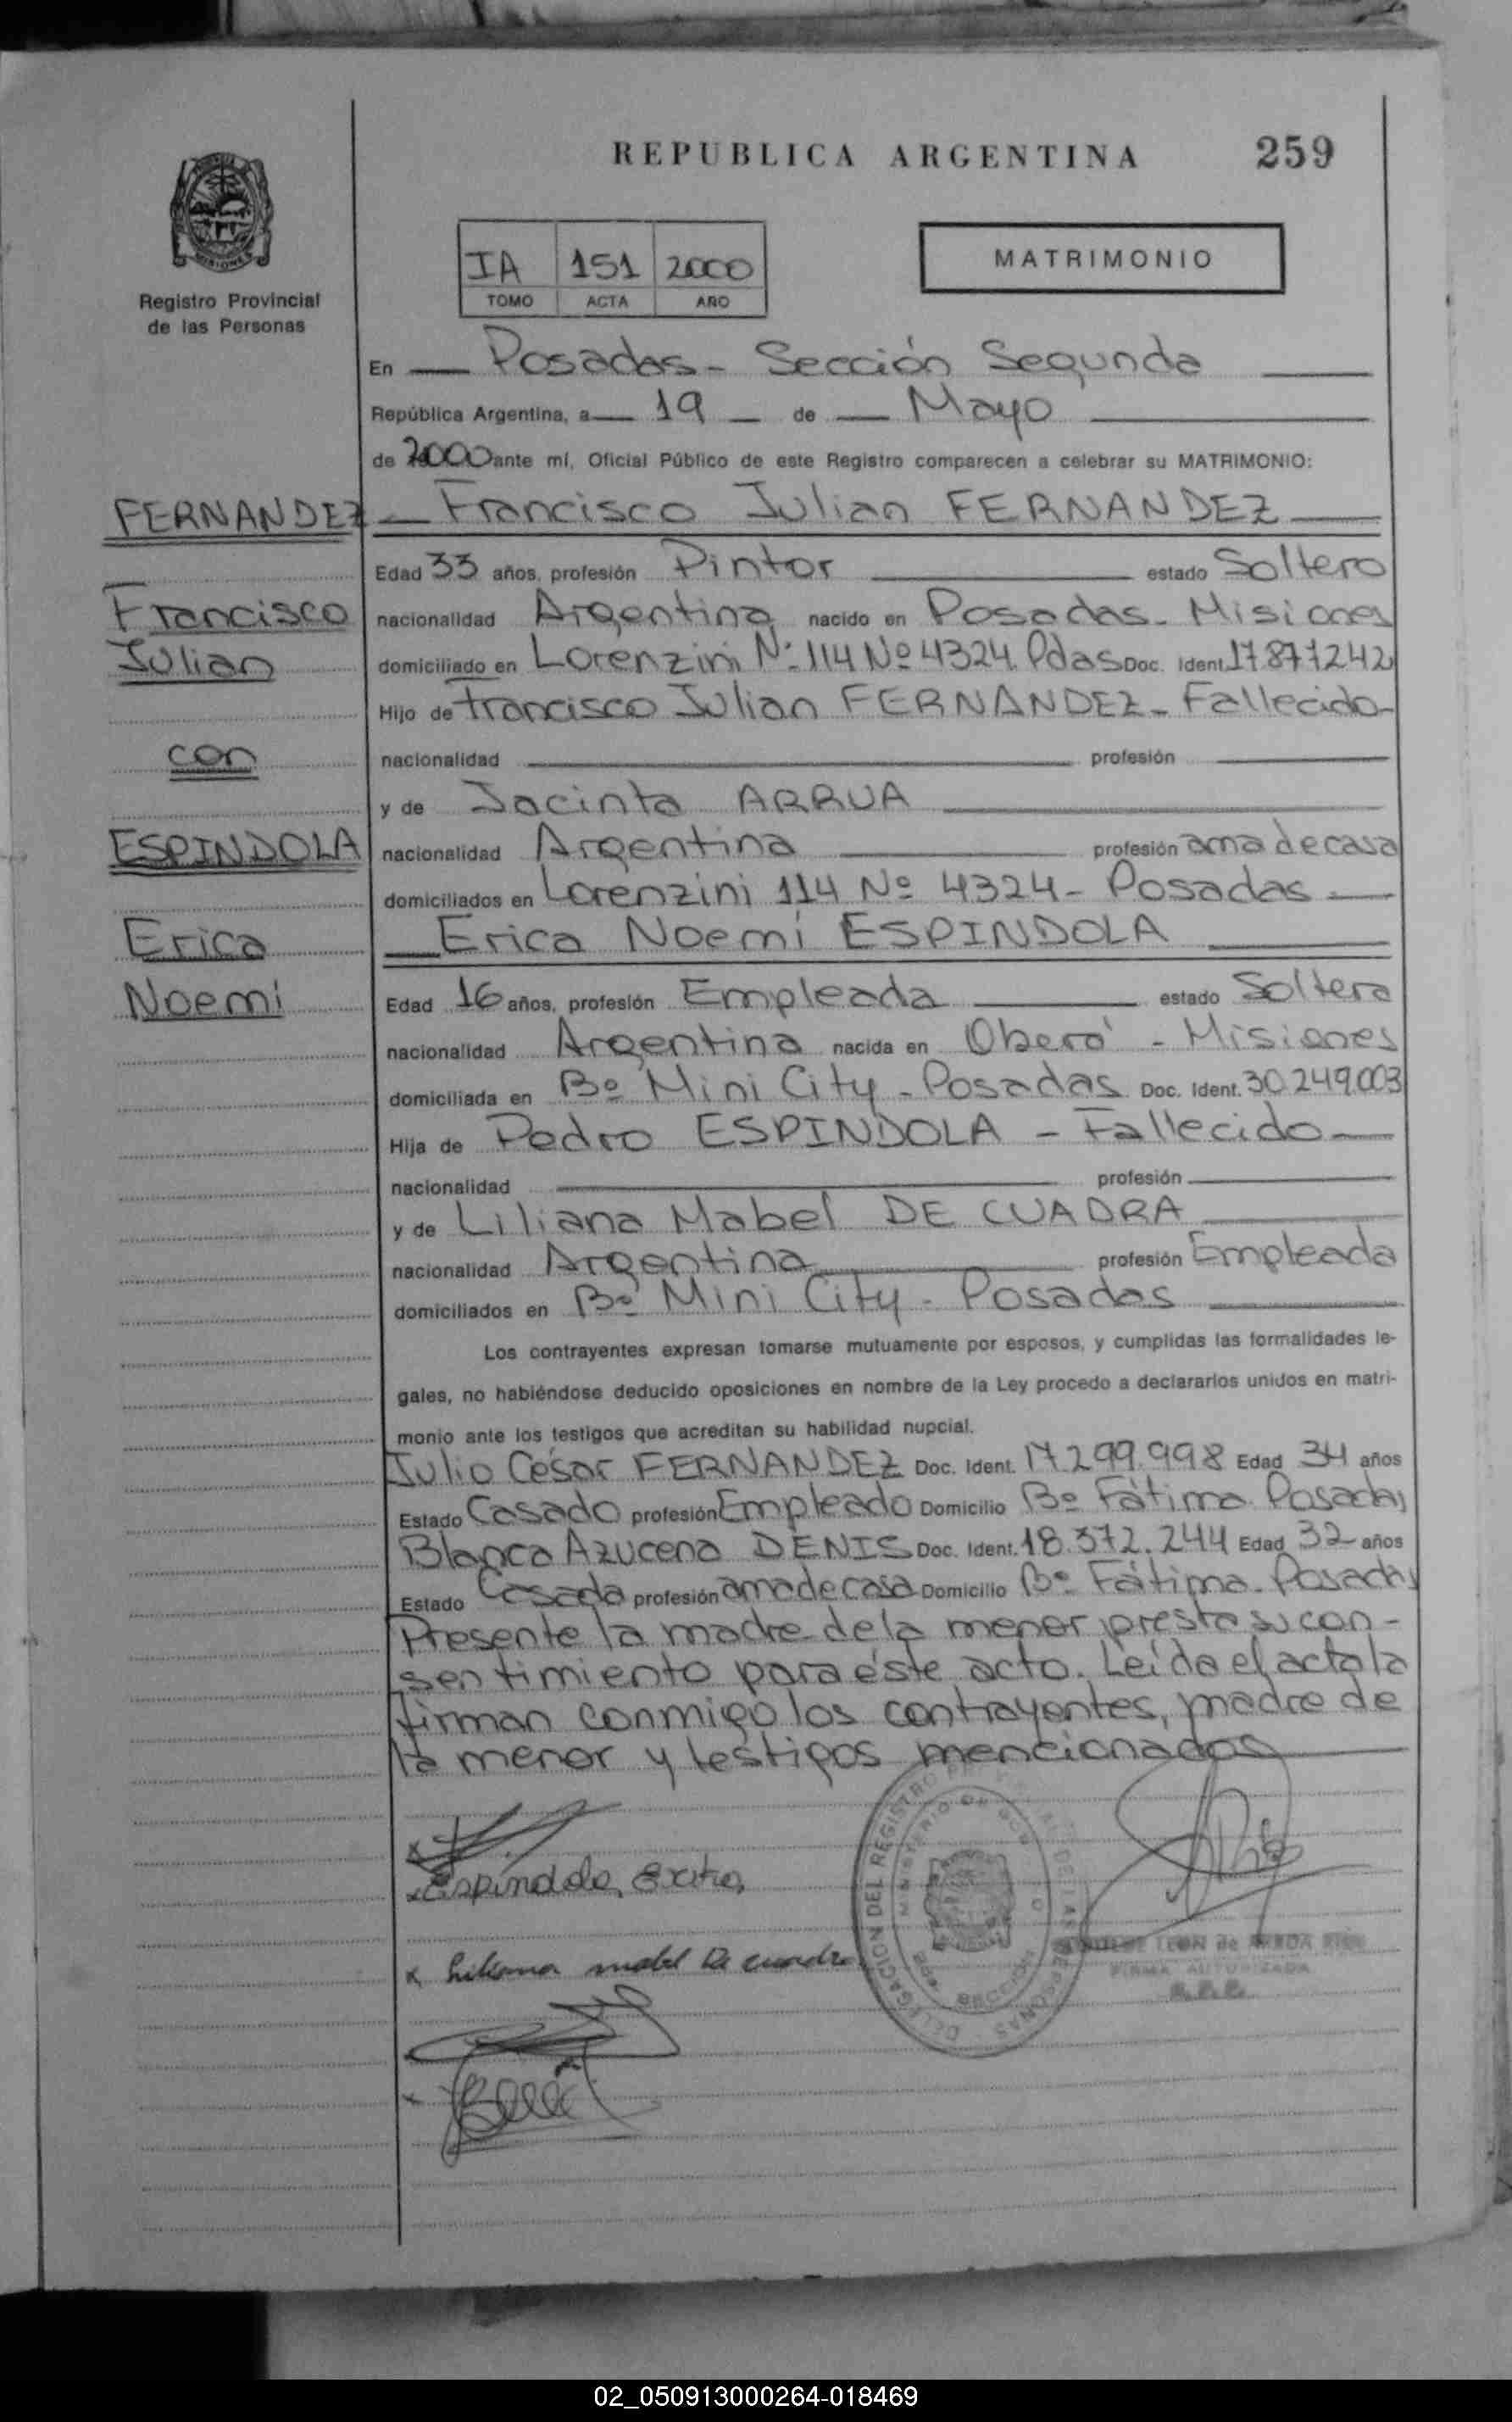 REPUBLICA ARGENTINA 259
MISIONES
Registro Provincial
de las Personas
IA 151 2000
TOMO ACTA AÑO
MATRIMONIO
En Posadas - Sección Segunda
República Argentina, a 19 de Mayo
de 2000 ante mí, Oficial Público de este Registro comparecen a celebrar su MATRIMONIO:
FERNANDEZ
Francisco
Julian
con
ESPINDOLA
Erica
Noemí
Francisco Julian FERNANDEZ
Edad 33 años, profesión Pintor estado Soltero
nacionalidad Argentina nacido en Posadas - Misiones
domiciliado en Lorenzini Nº 114 Nº 4324 Pdas Doc. Ident. 17.871.242
Hijo de Francisco Julian FERNANDEZ - Fallecido -
nacionalidad profesión
y de Jacinta ARRUA
nacionalidad Argentina profesión ama de casa
domiciliados en Lorenzini 114 Nº 4324 - Posadas
Erica Noemí ESPINDOLA
Edad 16 años, profesión Empleada estado Soltera
nacionalidad Argentina nacida en Oberá - Misiones
domiciliada en Bº Mini City - Posadas Doc. Ident. 30.249.003
Hija de Pedro ESPINDOLA - Fallecido
nacionalidad profesión
y de Liliana Mabel DE CUADRA
nacionalidad Argentina profesión Empleada
domiciliados en Bº Mini City - Posadas
Los contrayentes expresan tomarse mutuamente por esposos, y cumplidas las formalidades le-
gales, no habiéndose deducido oposiciones en nombre de la Ley procedo a declararlos unidos en matri-
monio ante los testigos que acreditan su habilidad nupcial.
Julio César FERNANDEZ Doc. Ident. 17.299.998 Edad 34 años
Estado Casado profesión Empleado Domicilio Bº Fátima. Posadas
Blanca Azucena DENIS Doc. Ident. 18.372.244 Edad 32 años
Estado Casada profesión ama de casa Domicilio Bº Fátima. Posadas
Presente la madre de la menor presta su con-
sentimiento para éste acto. Leída el acta la
firman conmigo los contrayentes, madre de
la menor y testigos mencionados
Espindola, Erica
Liliana mabel De cuadra
DELEGACION DEL REGISTRO DE LAS PERSONAS
MINISTERIO DE GOB
SECCION
LEON de
FIRMA AUTORIZADA
02_050913000264-018469